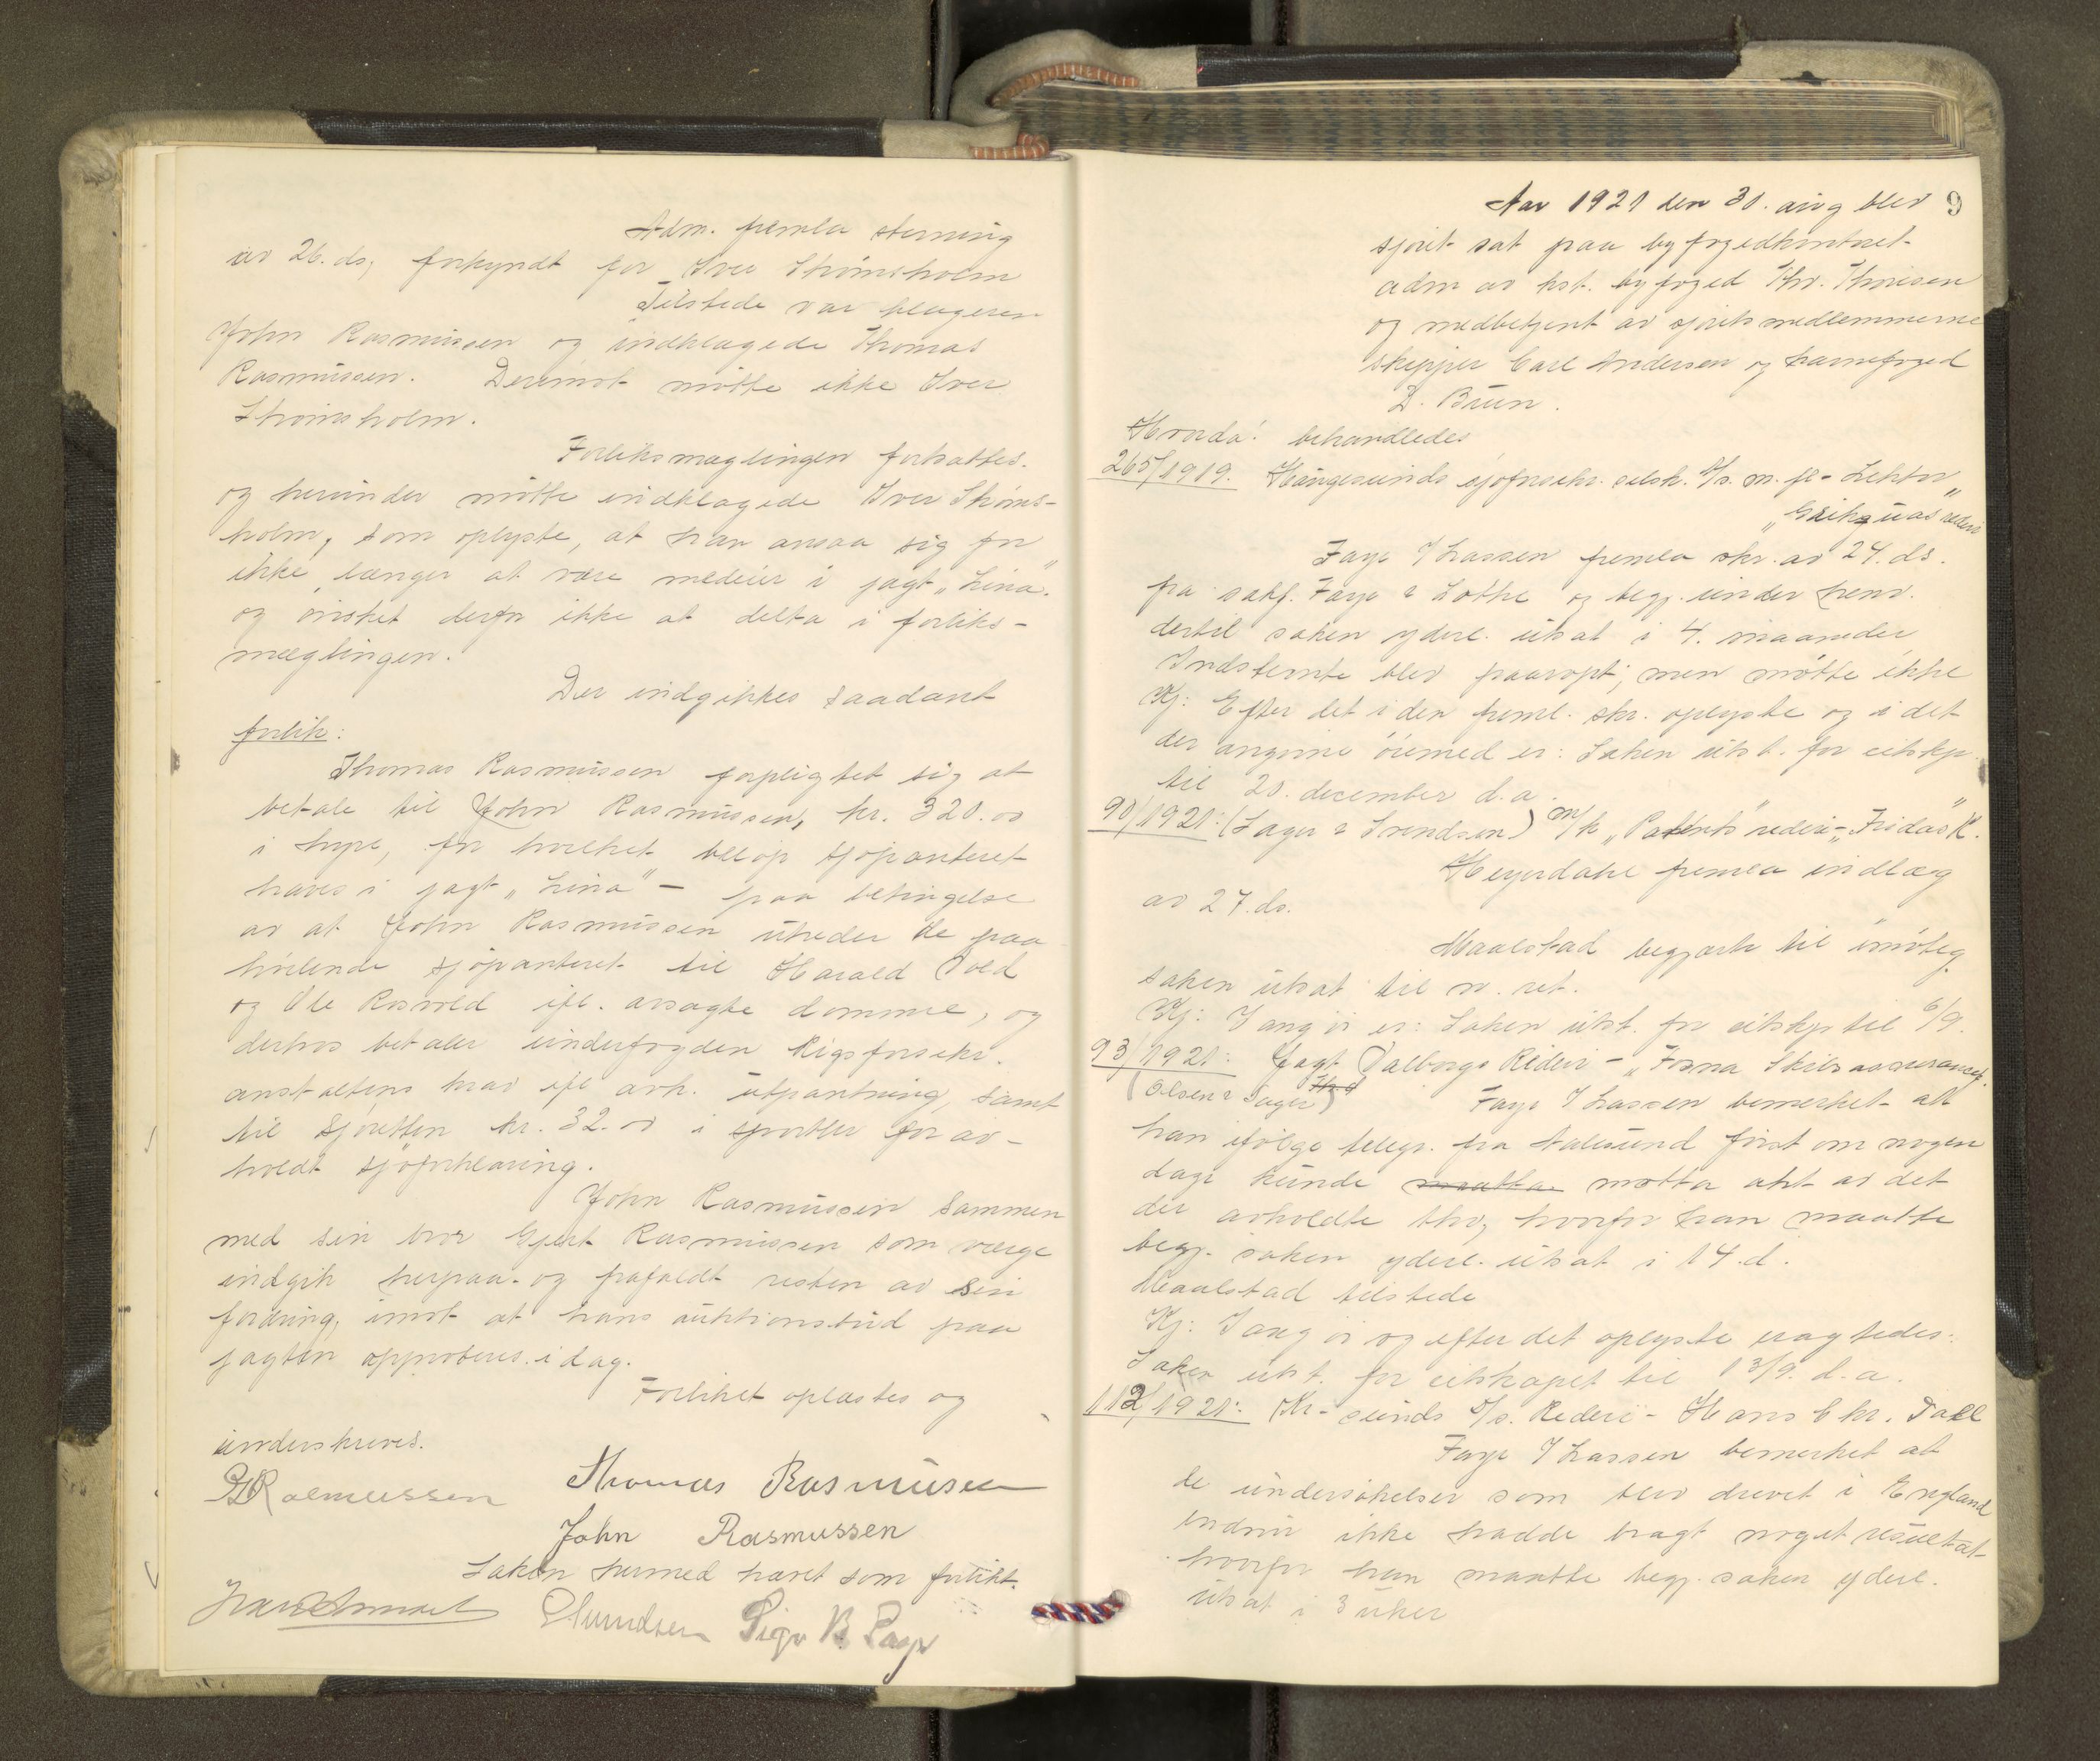 Adm. fremla stevning
av 26. ds, forkyndt for Iver Strømsholm
Tilstede var klageren
John Rasmussen og indklagede Thomas
Rasmussen. Derimot møtte ikke Iver
Strømsholm.
Forliksmæglingen fortsattes.
og herunder møtte indklagede Iver Strøms-
holm, som oplyste, at han ansaa sig for
ikke længer at være medeier i jagt "Lina".
og ønsket derfor ikke at delta i forliks-
mæglingen.
Der indgikkes saadant
forlik:
Thomas Rasmussen forpligtet sig at
betale til John Rasmussen, kr. 320.00
i hyre, for hvilket beløp sjøpanteret
haves i jagt "Lina" - paa betingelse
av at John Rasmussen utreder de paa
hvilende sjøpanteret til Harald Vold
og Ole Rosvold ifl. avsagte domme, og
derhos betaler underfogden Rigsforsikr.
anstaltens krav ifl avh. utpantning, samt
til Sjøretten kr. 32.00 i sportler for av-
holdt sjøforklaring.
John Rasmussen sammen
med sin bror Gjert Rasmussen som værge
indgik herpaa og frafaldt resten av sin
fordring, imot at hans auktionsbud paa
jagten approberes i dag.
Forliket oplæstes og
underskreves.
G Rasmussen Thomas Rasmussen
John Rasmussen
Saken hermed hævet som forlikt.
Sigv B.
Aar 1921 den 30. aug blev 9
sjøret sat paa byfogedkontoret
adm av kst. byfoged Thv. Thoresen
og medbetjent av sjøretsmedlemmerne
skipper Carl Andersen og havnefoged
D. Bruun.
Hvorda: behandledes
265/1919. Haugesunds sjøforsikr. selsk. A/s. m. fl - Lektor
"Griequas" rederi
Faye I Lassen fremla skr. av 24. ds.
fra sakf. Faye & Lothe og begj. under henv.
dertil saken yderl. utsat i 4. maaneder
Indstevnte blev paaropt; men møtte ikke
Kj: Efter det i den freml. skr. oplyste og i det
der angivne øiemed er: Saken utst. for eitskp.
til 20. december d.a.
90/1921: (Sager & Svendsen) m/k "Patents" rederi - "Fridas" R.
Heyerdahl fremla indlæg
av 27. ds.
Maalstad begjærte til imøteg.
saken utsat til n. ret.
Kj: I ang øi er: Saken utst. for eitskp til 6/9.
93/1921: Jagt Valborgs Rederi - "Fosna Skibsassurancef.
(Olsen & Sager)
Faye I Lassen bemerket at
han ifølge telegr. fra Aalesund først om nogen
dage kunde maatta motta akt av det
der avholdte thv, hvorfor han maatte
begj. saken yderl. utsat i 14. d.
Maalstad tilstede
Kj: I ang øi og efter det oplyste eragtedes:
Saken utst. for eitskapet til 13/9. d.a.
112/1921: Kr-sunds D/s. Rederi - Hans Chr. Dall
Faye I Lassen bemerket at
de undersøkelser som blev drevet i England
endnu ikke hadde bragt noget resultat
hvorfor han maatte begj. saken yderl.
utsat i 3 uker